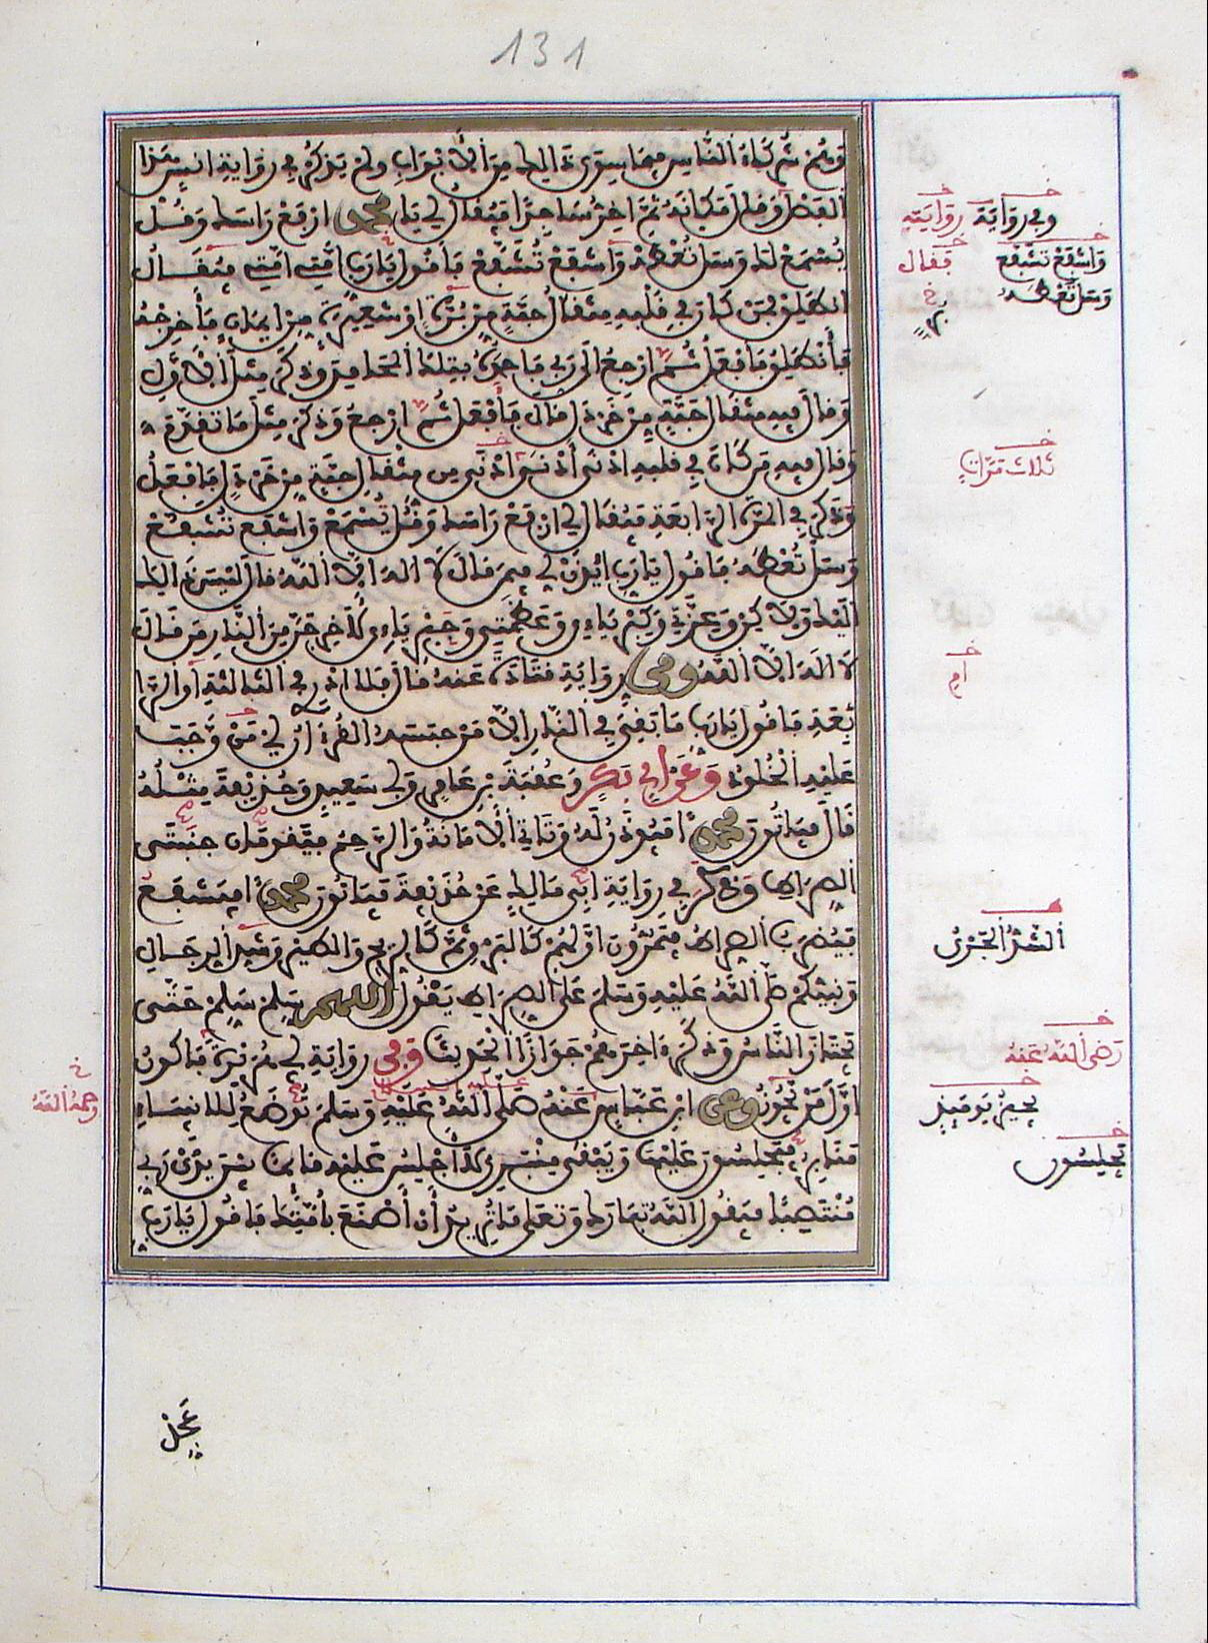 131
وهم شركاء الناس فيما سوى ذالك من الأبواب ولم يذكر في رواية انس هذا
الفصل وقال مكانه ثم اخر ساجدا فيقال لي يا محمد ارفع راسك وقل
يسمع لك وسل تعطه واشفع تشفع فأقول يا رب امتي امتي فيقال
انطلق فمن كان في قلبه مثقال حبة من برة او شعيرة من ايمان فأخرجه
فأنطلق فأفعل ثم ارجع الى ربي فأحمده بتلك المحامد وذكر مثل الأول
وقال فيه مثقال حبة من خردل قال فأفعل ثم ارجع وذكر مثل ما تقدم
وقال فيه من كان في قلبه ادنى أدنى ادنى من مثقال حبة من خردل فأفعل
وذكر في المرة الرابعة فيقال لي ارفع راسك وقل يسمع واشفع تشفع
وسل تعطه فأقول يا رب ايذن لي فيمن قال لا اله الا الله قال ليس ذالك
اليك ولاكن وعزتي وكبريائي وعظمتي وجبريائي لأخرجن من النار من قال
لا اله الا الله وفي رواية قتادة عنه قال فلا ادري في الثالثة او الرا
بعة فأقول يا رب ما بقي في النار الا من حبسه القرءان أي من وجب
عليه الخلود وعن ابي بكر وعقبة بن عامر وابي سعيد وحذيفة مثله
قال فياتون محمدا فيوذن له وتاتي الأمانة والرحم فيقومان جنبتي
الصراط وذكر في رواية ابي مالك عن حذيفة فياتون محمدا فيشفع
فيضرب الصراط فيمرون اولهم كالبرق ثم كالريح والطير وشد الرجال
ونبيكم صلى الله عليه وسلم على الصراط يقول اللهم سلم سلم حتى
يجتاز الناس وذكر ءاخرهم جوازا الحديث وفي رواية ابي هريرة فأكون
اول من يجوز وعن ابن عباس عنه صلى الله عليه وسلم توضع للانبياء
منابر يجلسون عليها ويبقى منبري لا أجلس عليه قائما بين يدي ربي
منتصبا فيقول الله تبارك وتعلى ما تريد أن أصنع بأمتك فأقول يا رب
وفي رواية روايته
واشفع تشفع فقال
وسل تعطه
ثلاث مرات
ام
رضي الله عنه
يجيز يومئذ
يجلسون
رحمه الله
عجل